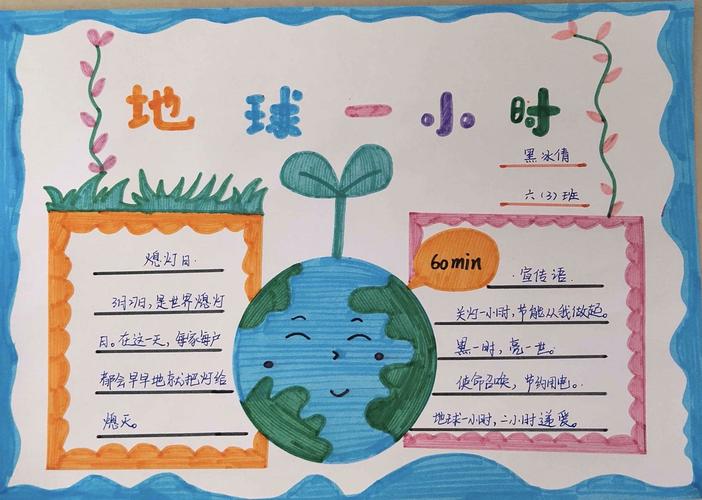 地球一小时
黑冰倩
六(3)班
熄灯日
3月27日,是世界熄灯
日。在这一天,每家每户
都会早早地就把灯给
熄灭。
60min
宣传语
关灯一小时,节能从我做起。
黑一时,亮一世。
使命召唤,节约用电。
地球一小时,二小时递爱。